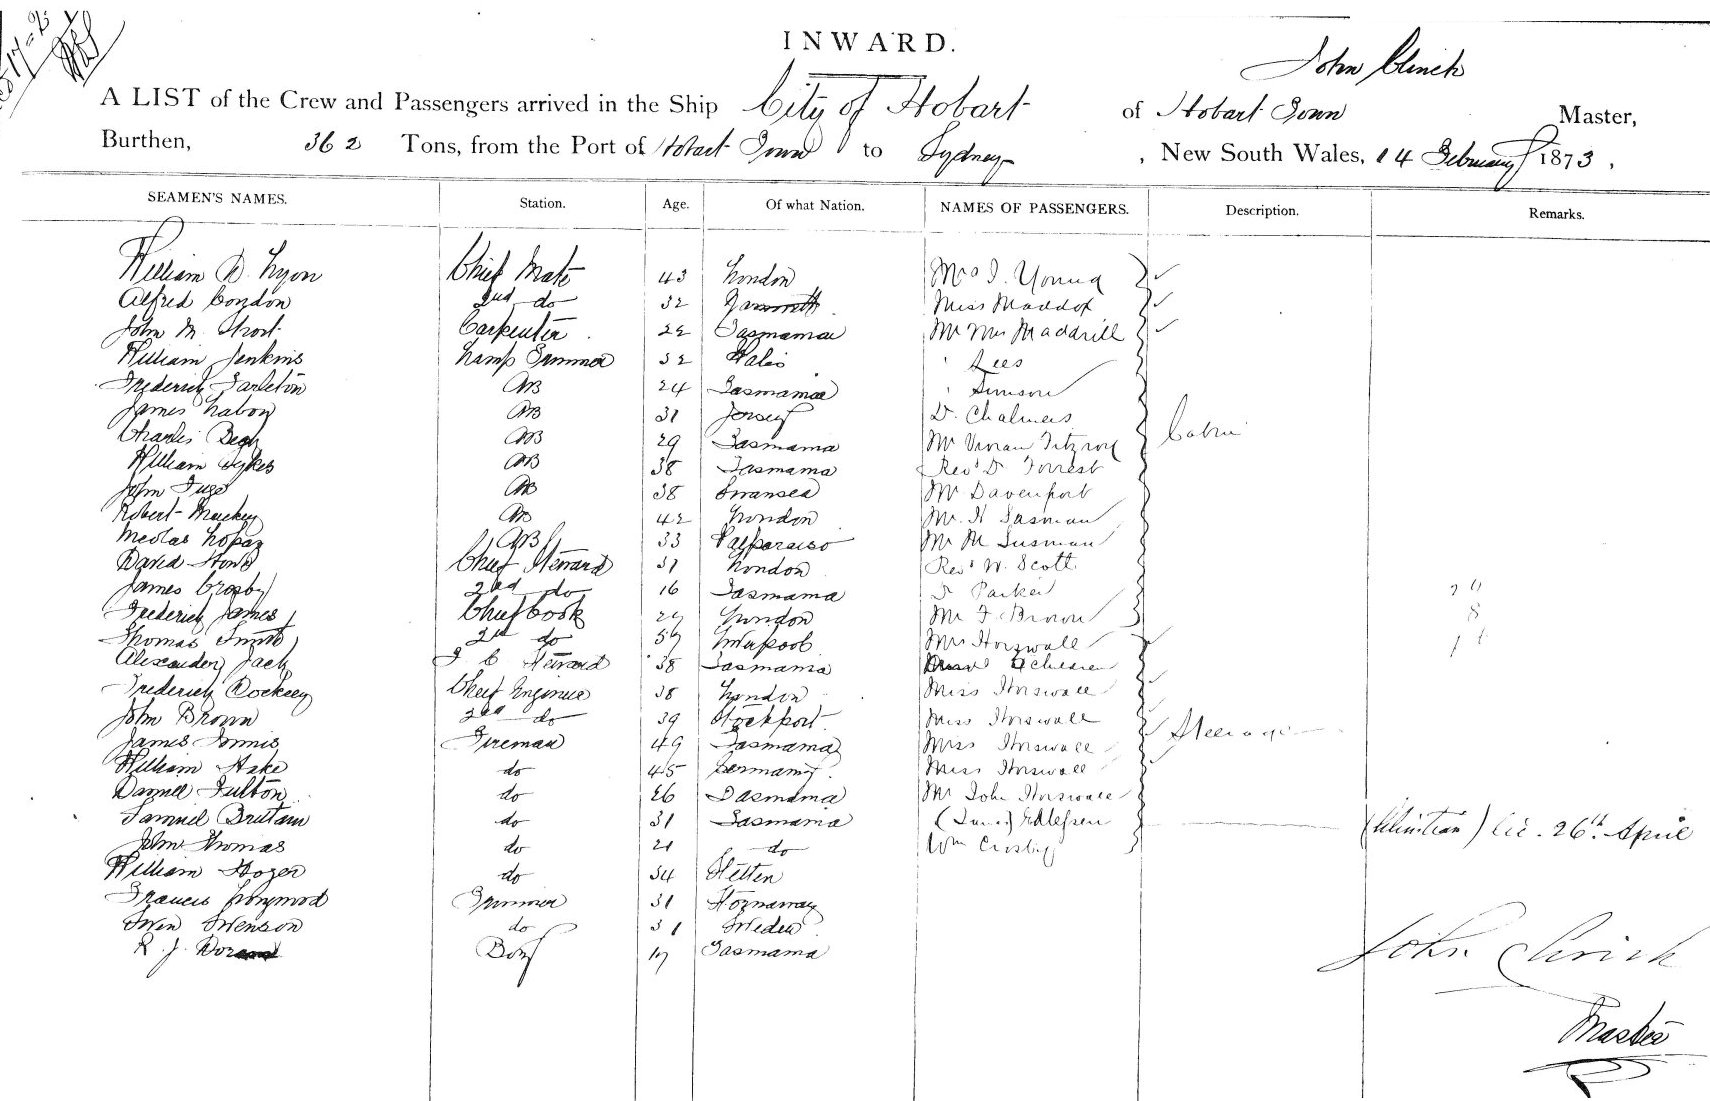 INWARD.
John Clinch
A LIST of the Crew and Passengers arrived in the Ship City of Hobart of Hobart Town Master,
Burthen, 362 Tons, from the Port of Hobart Town to Sydney , New South Wales, 14 February 1873 ,
SEAMEN'S NAMES. Station. Age. Of what Nation. NAMES OF PASSENGERS. Description. Remarks.
William D. Lyon Chief Mate 43 London Mrs J. Young
Alfred Condon 2nd do 32 Miss Maddox
John M. Chief Carpenter 22 Tasmania Mr Mrs Maddrill
William Jenkins Lamp Trimmer 32 Wales " Lees
Frederick Tarleton AB 24 Tasmania " Simson
James AB 31 Jersey D. Chalmers
Charles AB 29 Tasmania Mr Vivian Fitzroy Cabin
William Sykes AB 38 Tasmania Revd D Forrest
John AB 38 Swansea Mr Davenport
Robert Mackey AB 42 London Mr. H
Nicolas Lopaz AB 33 Valparaiso Mr M Susman
David Chief Steward 31 London Revd W. Scott
James Crosby 2nd do 16 Tasmania Parker
Frederick James Chief Cook London Mr F Brown 8
Thomas Smith 2nd do Liverpool Mrs Horswall
Alexander Jack Steward 38 Tasmania children
Frederick Chief Engineer 38 London Miss Horswall
John Brown 2nd do 39 Stockport Miss Horswall
James Innis Fireman 49 Tasmania Miss Horswall Steerage
William Hake do 45 Germany. Miss Horswall
Daniel Fulton do 26 Tasmania Mr John Horswall
Samuel Brittain do 31 Tasmania Edlefsen (Christian) 26th April
John Thomas do 21 do Wm Crosby
William do 34
Francis Trimmer 31 Stornaway
Swen Swenson do 31 Sweden
R. J. Boy 17 Tasmania
John Clinch
Master